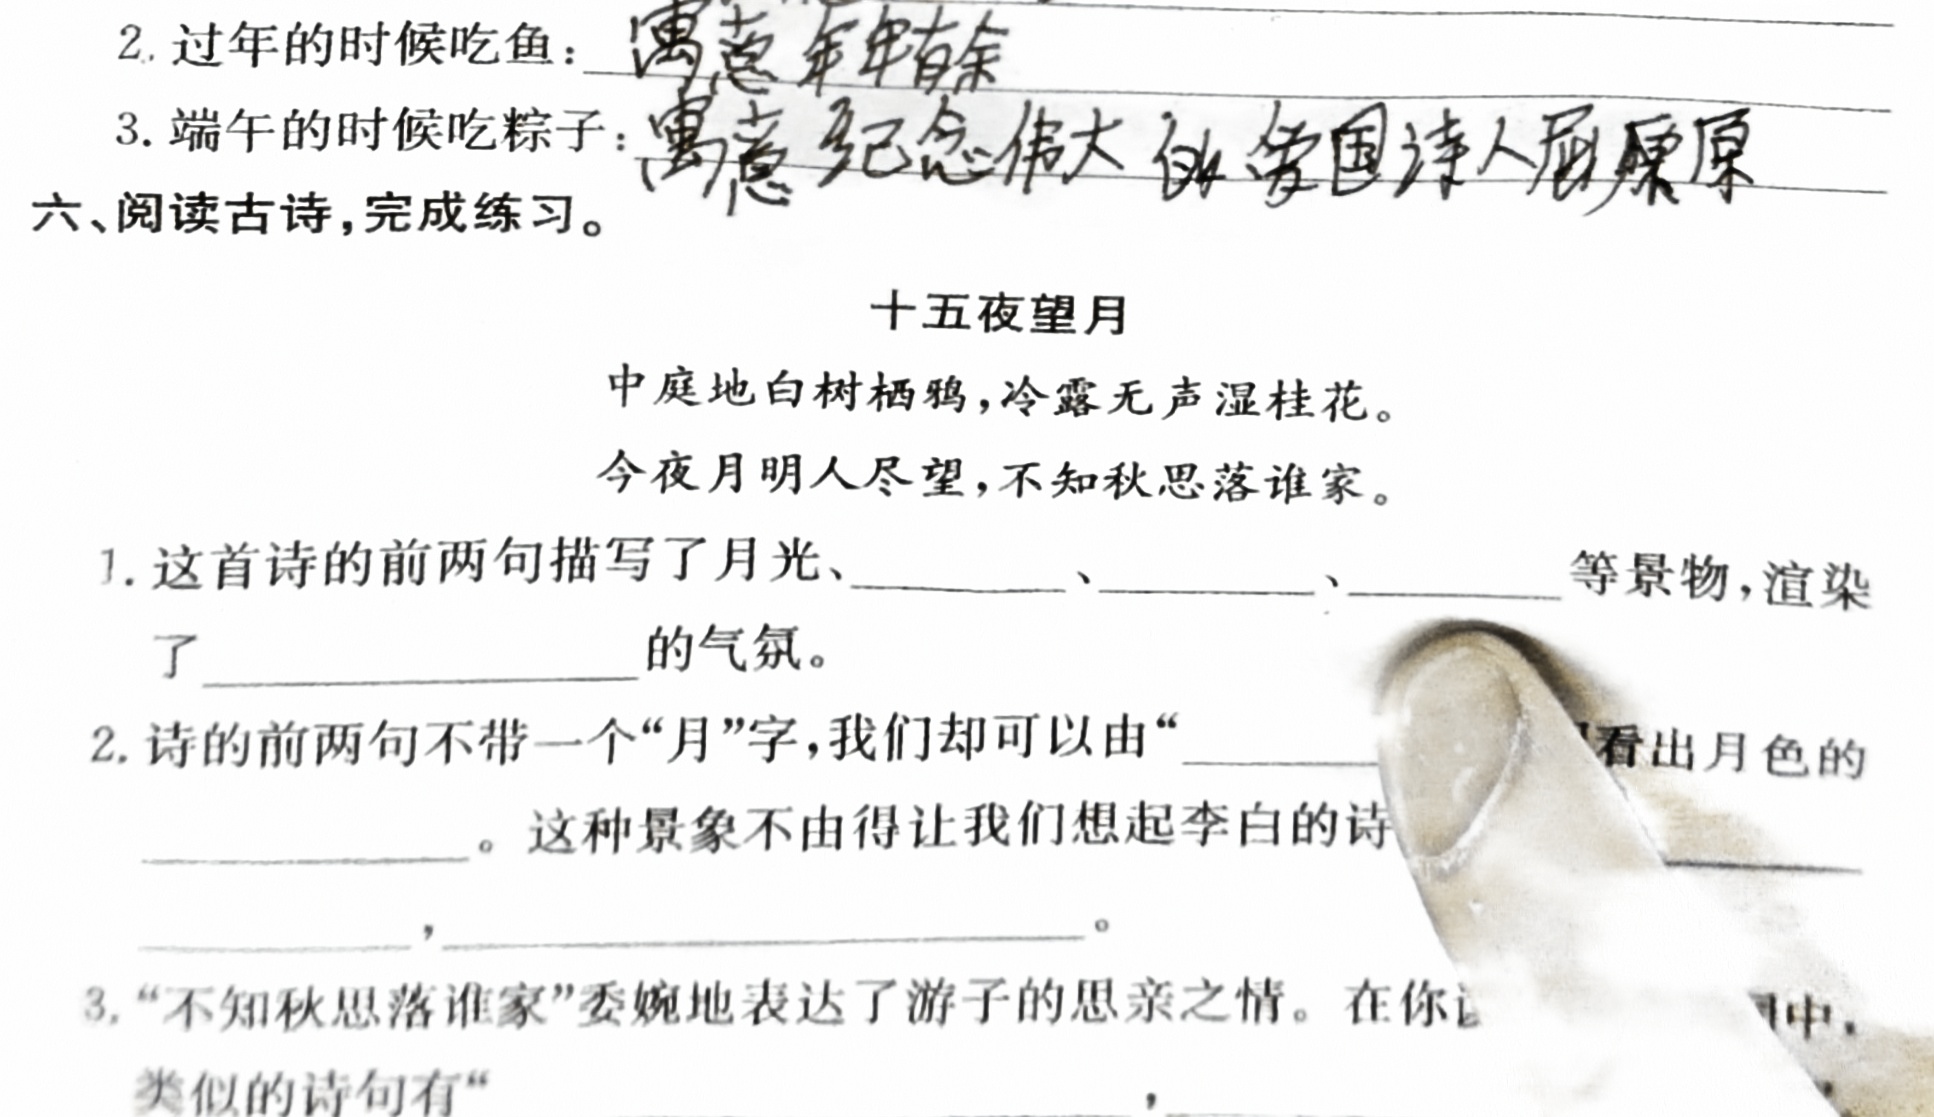 2. 过年的时候吃鱼：寓意年年有余
3. 端午的时候吃粽子：寓意纪念伟大的爱国诗人屈原
六、阅读古诗，完成练习。
十五夜望月
中庭地白树栖鸦，冷露无声湿桂花。
今夜月明人尽望，不知秋思落谁家。
1. 这首诗的前两句描写了月光、________、________、________等景物，渲染
了________________的气氛。
2. 诗的前两句不带一个“月”字，我们却可以由“________看出月色的
____________。这种景象不由得让我们想起李白的诗________
__________，________________________。
3. “不知秋思落谁家”委婉地表达了游子的思亲之情。在你 中，
类似的诗句有“________________，________